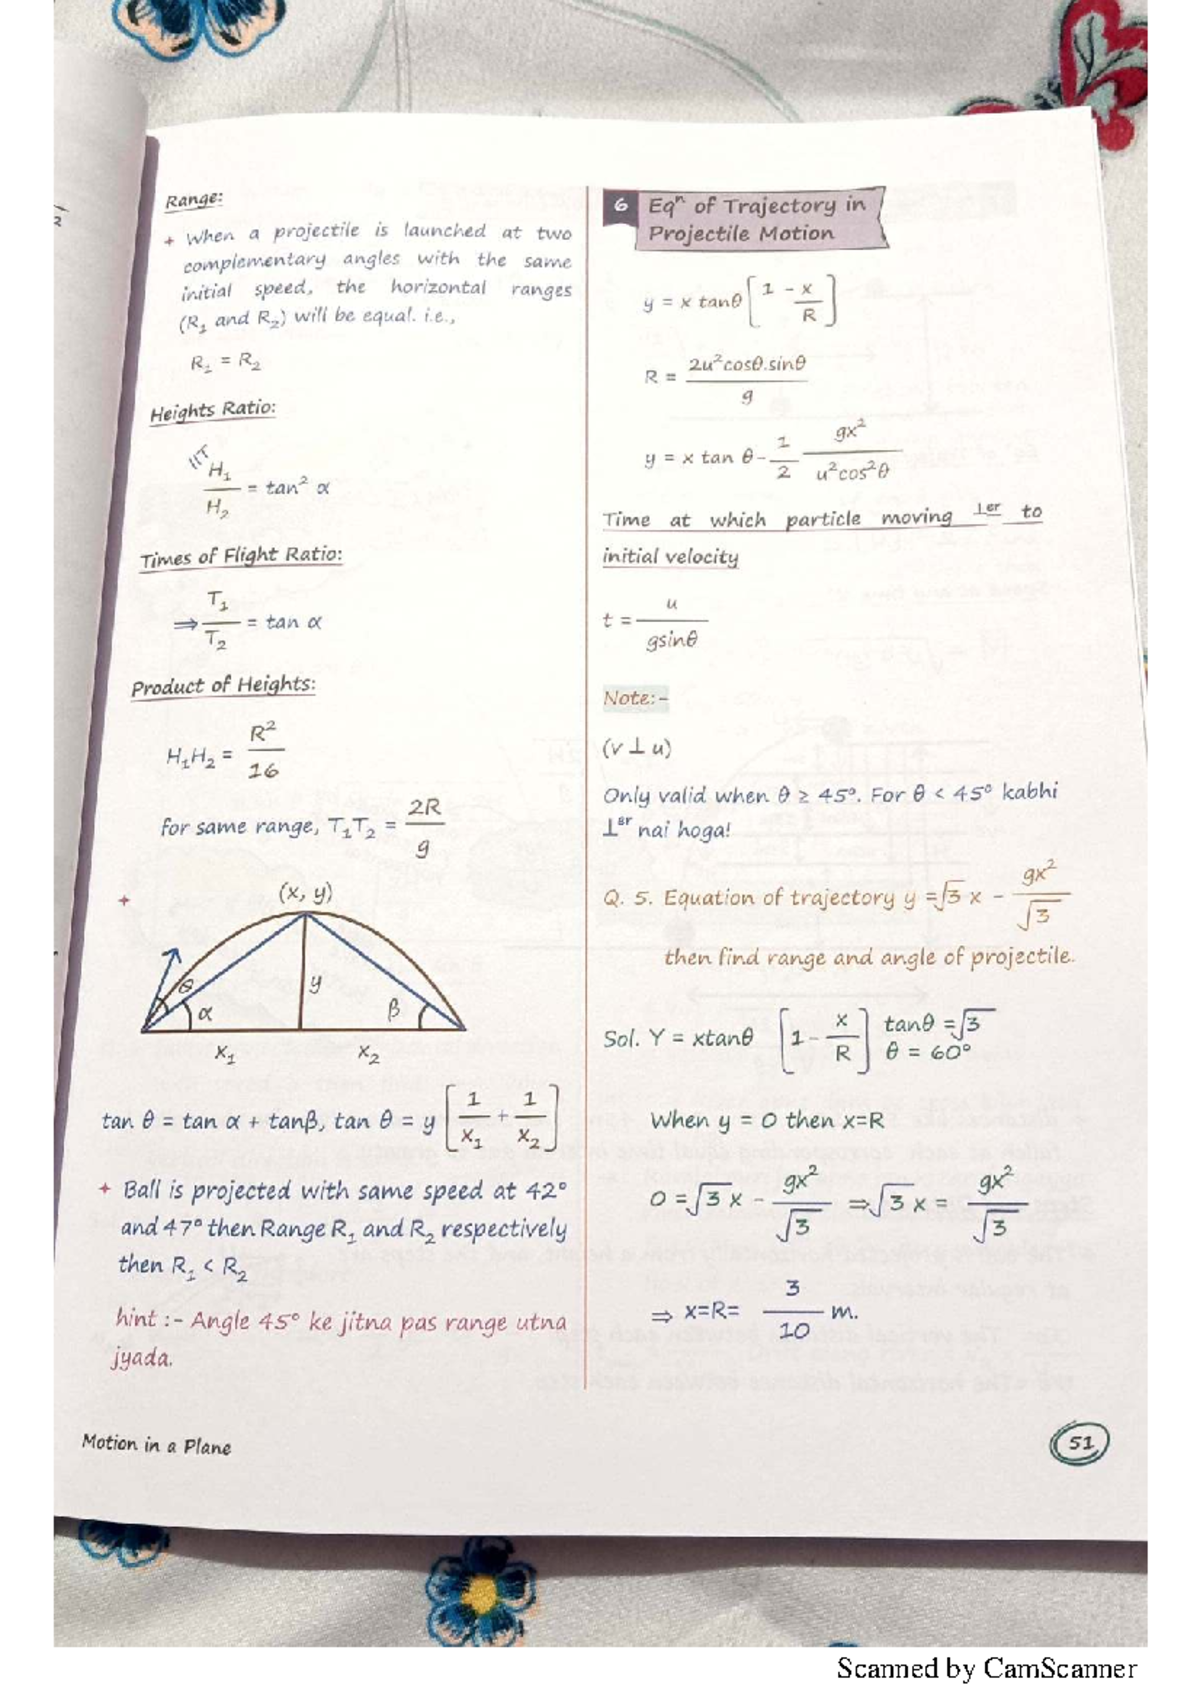 Range:
+ When a projectile is launched at two
complementary angles with the same
initial speed, the horizontal ranges
(R₁ and R₂) will be equal. i.e.,
R₁ = R₂
Heights Ratio:
IIT
H₁/H₂ = tan² α
Times of Flight Ratio:
⇒ T₁/T₂ = tan α
Product of Heights:
H₁H₂ = R²/16
for same range, T₁T₂ = 2R/g
+
(x, y)
θ α y β
x₁ x₂
tan θ = tan α + tanβ, tan θ = y [1/x₁ + 1/x₂]
+ Ball is projected with same speed at 42°
and 47° then Range R₁ and R₂ respectively
then R₁ < R₂
hint :- Angle 45° ke jitna pas range utna
jyada.
Motion in a Plane
6 Eqⁿ of Trajectory in
Projectile Motion
y = x tanθ [1 - x/R]
R = 2u²cosθ.sinθ/g
y = x tan θ - 1/2 gx²/u²cos²θ
Time at which particle moving ⊥er to
initial velocity
t = u/gsinθ
Note:-
(v ⊥ u)
Only valid when θ ≥ 45°. For θ < 45° kabhi
⊥er nai hoga!
Q. 5. Equation of trajectory y = √3 x - gx²/√3
then find range and angle of projectile.
Sol. Y = xtanθ [1 - x/R] tanθ = √3
θ = 60°
When y = 0 then x=R
0 = √3 x - gx²/√3 ⇒ √3 x = gx²/√3
⇒ x=R= 3/10 m.
51
Scanned by CamScanner